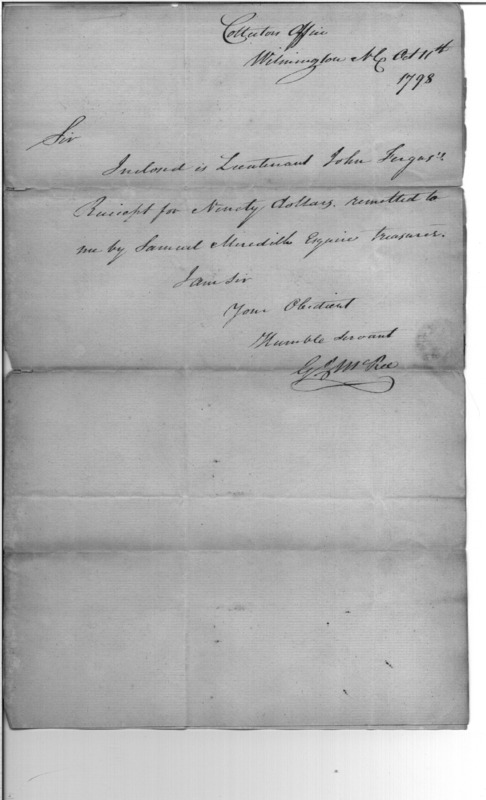 Collectors Office
Wilmington NC Oct 11th
1798
Sir
Inclosed is Lieutenant John Fergus's
Receipt for Ninety dollars, remitted to
me by Samuel Meredith Esquire Treasurer.
I am Sir
Your Obedient
Humble Servant
G J McRee